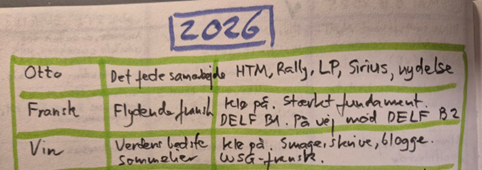 2026
Otto Det fede samarbejde HTM, Rally, LP, Sirius, nydelse
Fransk Flydende fransk Klø på. Stærkt fundament.
DELF B1. På vej mod DELF B2
Vin Verdens bedste Klø på. Smage, skrive, blogge.
sommelier WSG-fransk.